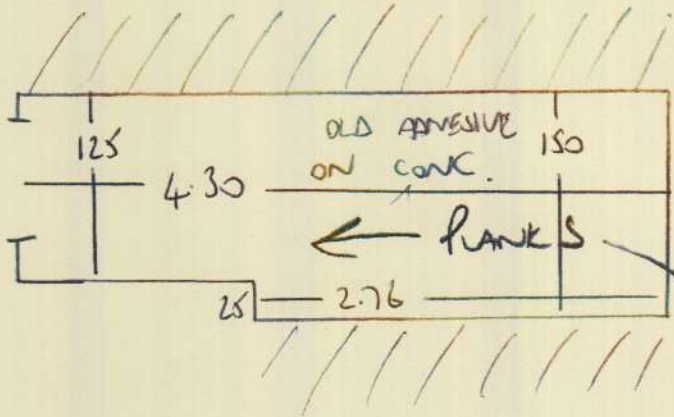 OLD ADHESIVE
ON CONC.
125
150
4.30
PLANKS
25
2.76